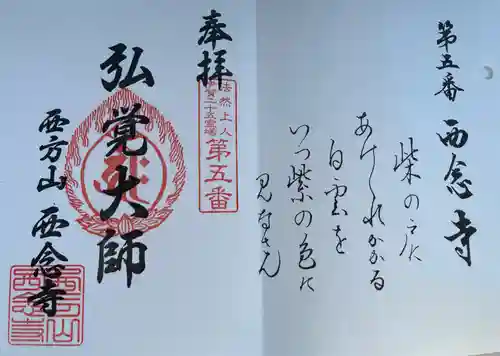 第五番
西念寺
柴の戸に
あけくれかかる
白雲を
いつ紫の色に
見なさん
奉拝
法然上人
伊賀二十五霊場
第五番
弘覚大師
西方山 西念寺
西方山
西念寺